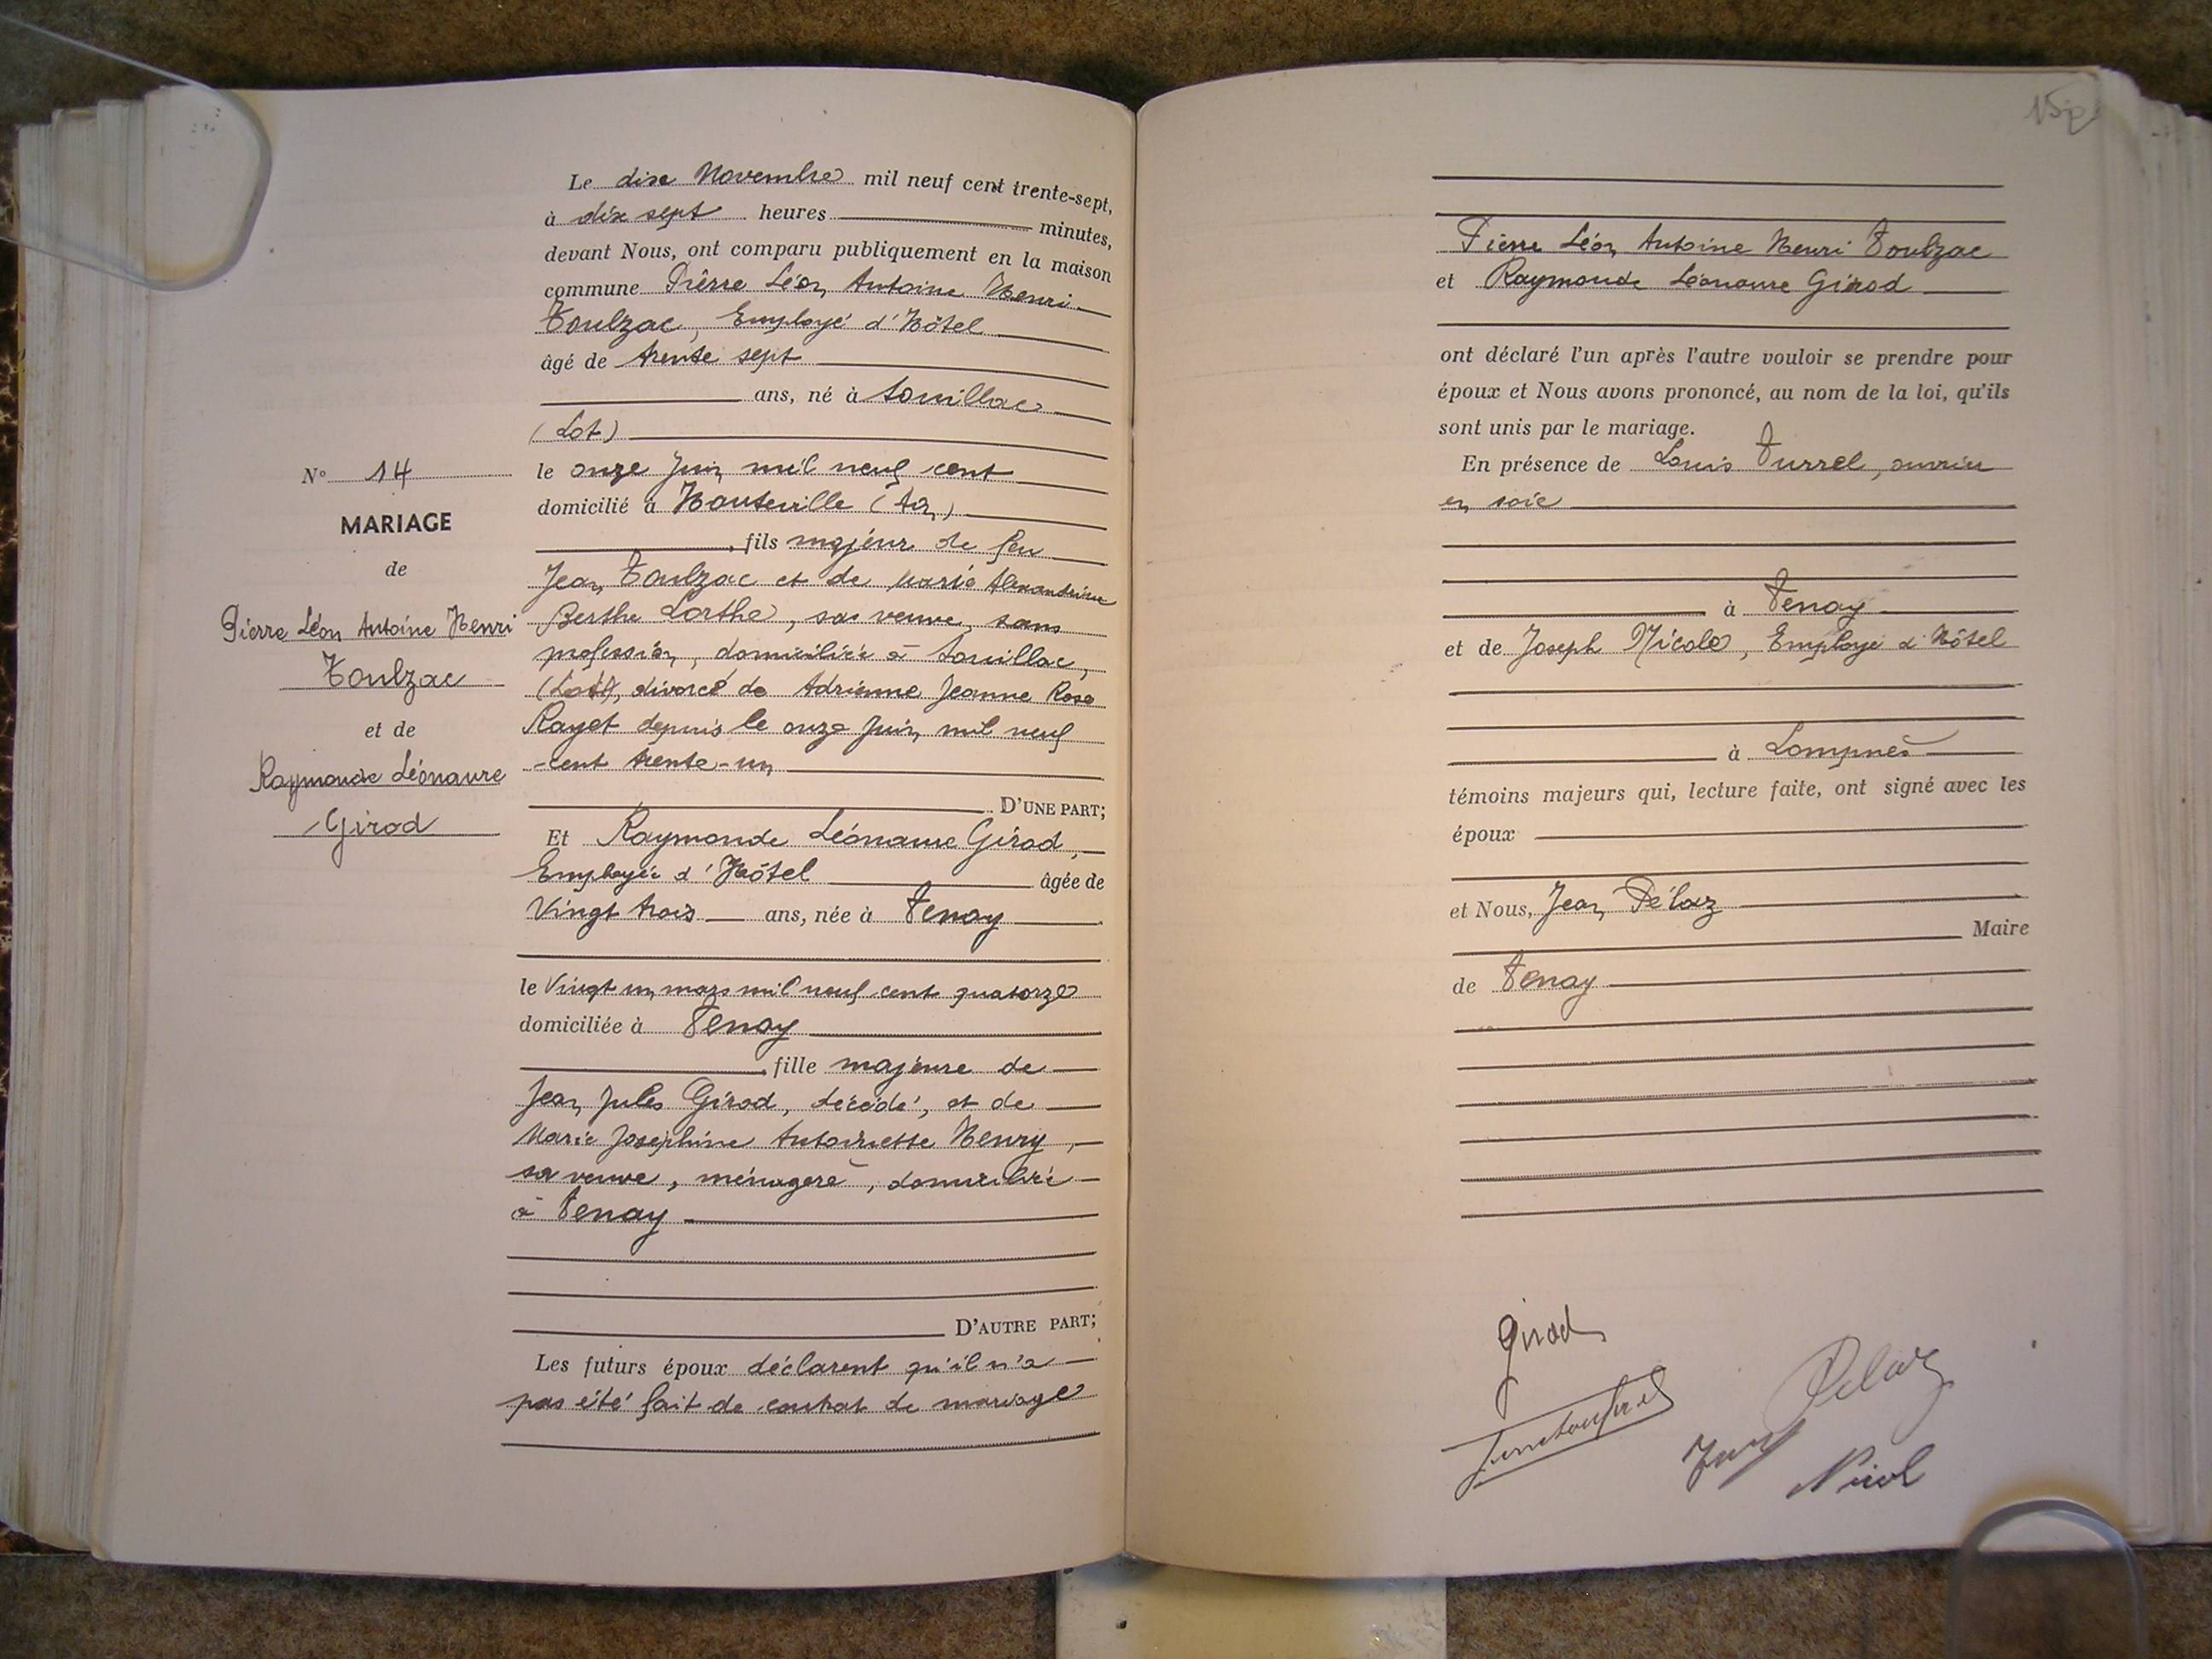 Le dix Novembre mil neuf cent trente-sept,
à dix sept heures minutes,
devant Nous, ont comparu publiquement en la maison
commune Pierre Léon Antoine Henri
Toulzac, Employé d'Hôtel
âgé de trente sept
ans, né à Souillac
(Lot)
le onze Juin mil neuf cent
domicilié à Hauteville (Ain)
, fils majeur de feu
Jean Toulzac et de Marie Alexandrine
Berthe Lorthe, sa veuve, sans
profession, domiciliée à Souillac,
(Lot), divorcé de Adrienne Jeanne Rose
Rayet depuis le onze Juin mil neuf
-cent trente-un
D'UNE PART;
N° 14
MARIAGE
de
Pierre Léon Antoine Henri
Toulzac
et de
Raymonde Léonaure
Girod
Et Raymonde Léonaure Girod,
Employée d'Hôtel âgée de
Vingt trois ans, née à Tenay
le Vingt un mars mil neuf cent quatorze
domiciliée à Tenay
, fille majeure de
Jean Jules Girod, décédé, et de
Marie Joséphine Antoinette Henry,
sa veuve, ménagère, domiciliée
à Tenay
D'AUTRE PART;
Les futurs époux déclarent qu'il n'a
pas été fait de contrat de mariage
Pierre Léon Antoine Henri Toulzac
et Raymonde Léonaure Girod
ont déclaré l'un après l'autre vouloir se prendre pour
époux et Nous avons prononcé, au nom de la loi, qu'ils
sont unis par le mariage.
En présence de Louis Turrel, ouvrier
en soie
à Tenay
et de Joseph Nicole, Employé d'Hôtel
à Lompnes
témoins majeurs qui, lecture faite, ont signé avec les
époux
et Nous, Jean Pélaz
Maire
de Tenay
Girod
Pelaz
Nicol